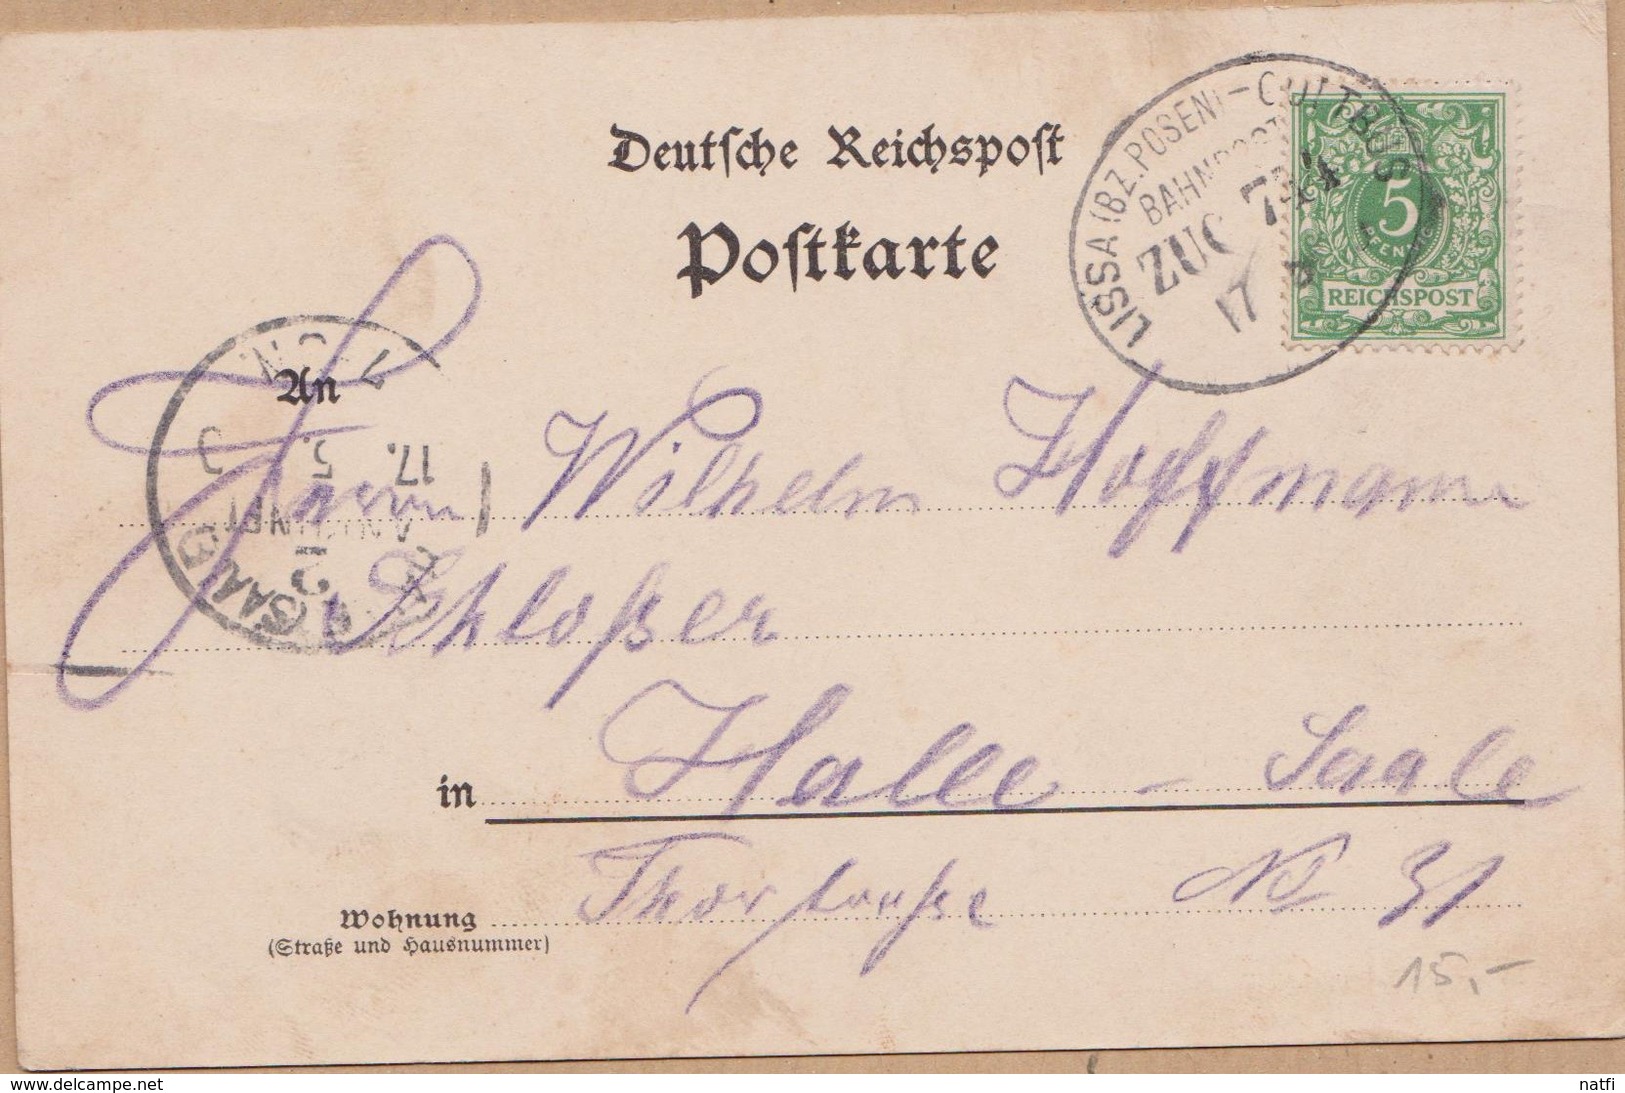 Deutsche Reichspost
Postkarte
LISSA (BZ. POSEN) - COTTBUS
BAHNPOST
ZUG
17
5
REICHSPOST
An
17. 5.
(SAALE)
Herrn Wilhelm Hoffmann
Schloßer
in Halle - Saale
Wohnung Thorstraße No 31
(Straße und Hausnummer)
15,-
www.delcampe.net
natfi